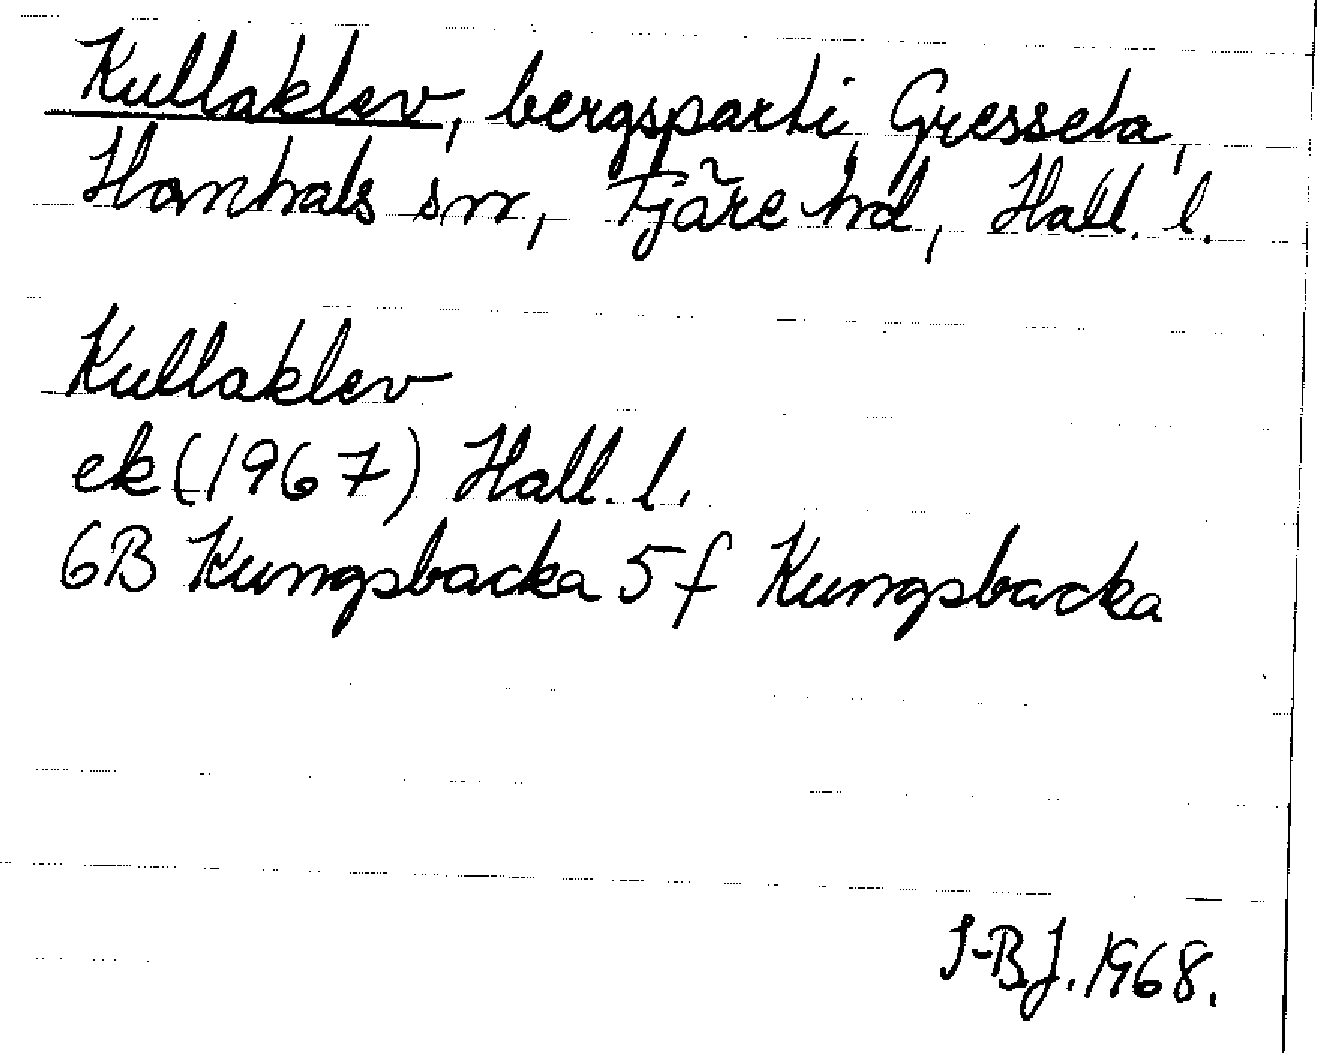 Kullaklev, bergsparti, Gressela,
Hanhals sn, Fjäre hd, Hall. l.
Kullaklev
ek (1967) Hall. l.
6B Kungsbacka 5f Kungsbacka
I-B.J. 1968.